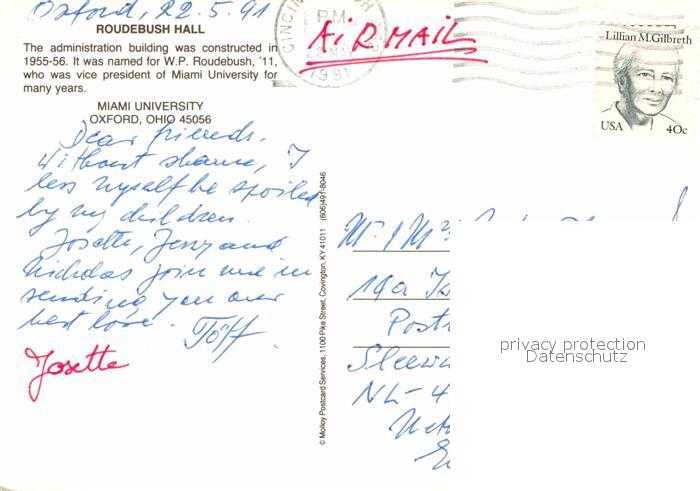 Oxford, 22.5.91
ROUDEBUSH HALL
The administration building was constructed in
1955-56. It was named for W.P. Roudebush, '11,
who was vice president of Miami University for
many years.
MIAMI UNIVERSITY
OXFORD, OHIO 45056
Dear friends.
Without shame, I
less myself be spoiled
by my children.
Josette, Jenz and
Nicholas join me in
sending you our
best love. Töff.
Josette
© Molloy Postcard Services, 1100 Pike Street, Covington, KY 41011 (606)491-8046
CINCIN
PM
1991
AIR MAIL
Lillian M.Gilbreth
USA 40c
Mr. / Mrs
19a
Post
NL-4
privacy protection
Datenschutz